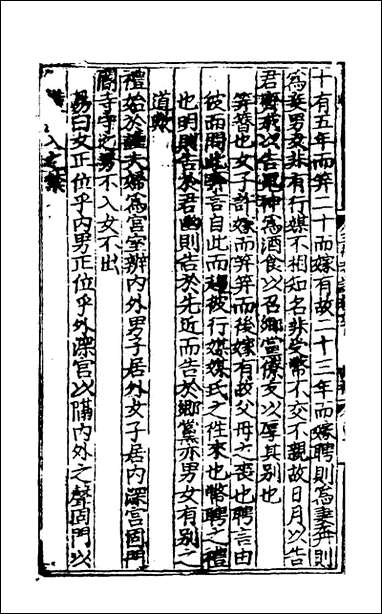 十有五年而笄二十而嫁有故二十三年而嫁聘則爲妻奔則
爲妾男女非有行媒不相知名非受幣不交不親故日月以告
君齊戒以告鬼神爲酒食以召鄉黨僚友以厚其別也
笄簪也女子許嫁而笄笄而後嫁有故父母之喪也聘言由
彼而問此奔言自此而趨彼行媒媒氏之往來也幣聘之禮
也明則告於君幽則告於先近而告於鄉黨亦男女有別之
道歟
禮始於謹夫婦爲宮室辨內外男子居外女子居內深宮固門
閽寺守之男不入女不出
易曰女正位乎內男正位乎外深宮以隔內外之聲固門以